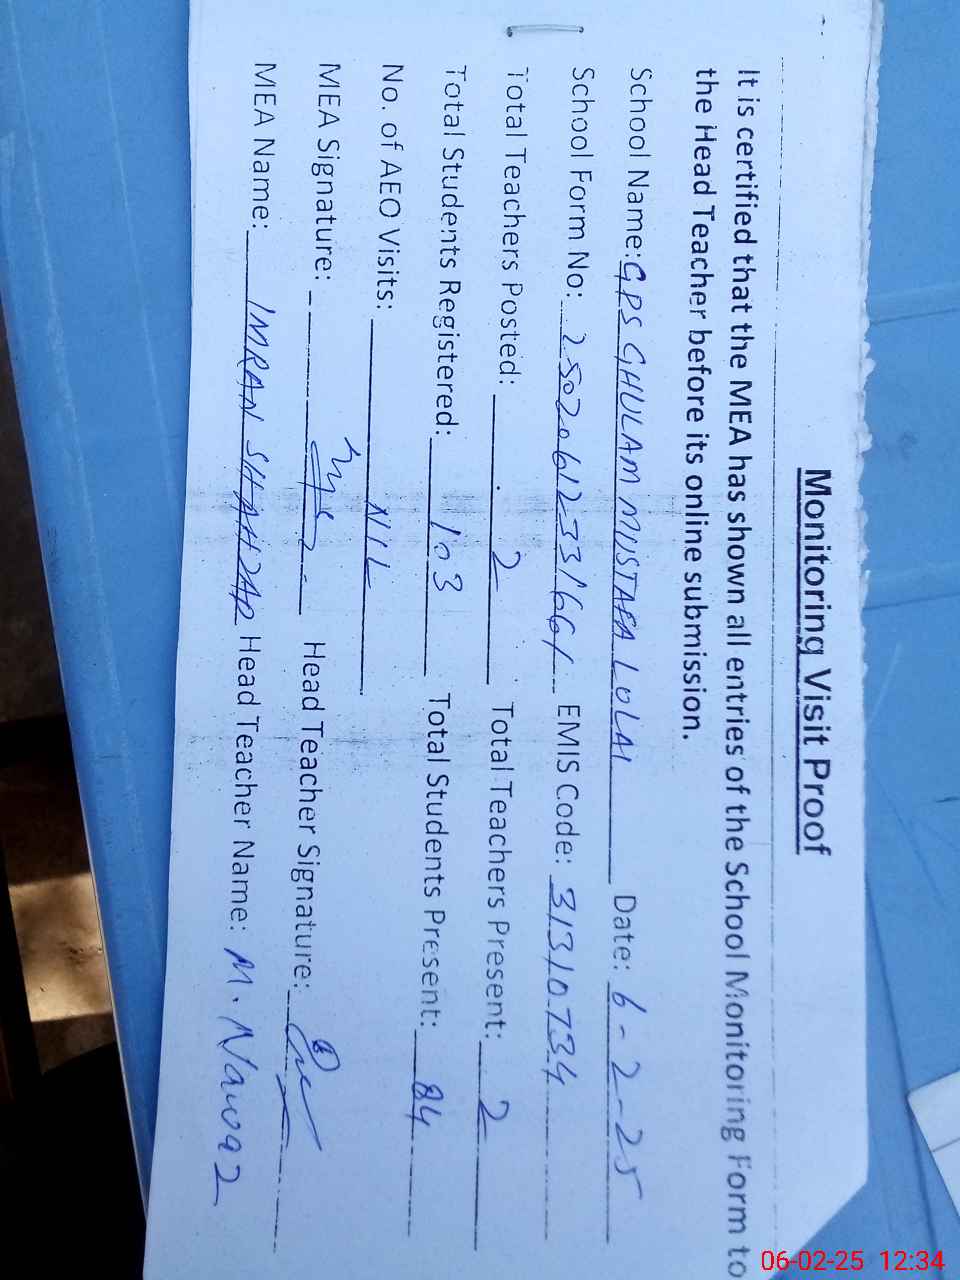 Monitoring Visit Proof
It is certified that the MEA has shown all entries of the School Monitoring Form to
the Head Teacher before its online submission.
School Name: GPS GHULAM MUSTAFA LOLAI Date: 6-2-25
School Form No: 2502061233166/ EMIS Code: 31310734
Total Teachers Posted: 2 Total Teachers Present: 2
Total Students Registered: 103 Total Students Present: 84
No. of AEO Visits: NIL
MEA Signature: Head Teacher Signature:
MEA Name: IMRAN SHAHZAD Head Teacher Name: M. Nawaz
06-02-25 12:34